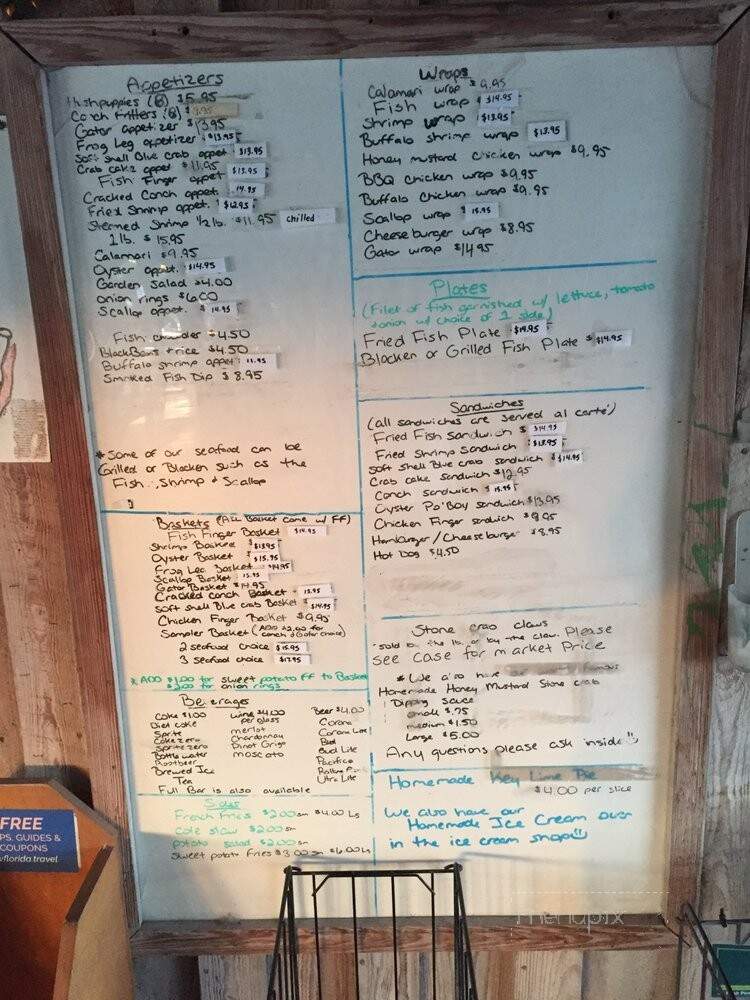 Appetizers
Hushpuppies (8) $5.95
Conch Fritters (8) $
Gator appetizer $13.95
Frog Leg appetizer $13.95
Soft Shell Blue crab appet $13.95
Crab cake appet $11.95
Fish Finger appet $13.95
Cracked Conch appet. 14.95
Fried Shrimp appet. $12.95
Stermed Shrimp 1/2 lb. $11.95 chilled
1 lb. $15.95
Calamari $9.95
Oyster appet. $14.95
Garden Salad $4.00
onion rings $6.00
Scallop appet. $14.95
Fish chowder $4.50
Black Beans + rice $4.50
Buffalo shrimp appet. 13.95
Smoked Fish Dip $8.95
* Some of our seafood can be
Grilled or Blacken such as the
Fish, Shrimp + Scallop
Baskets (All Basket come w/ FF)
Fish Finger Basket $14.95
Shrimp Basket $13.95
Oyster Basket $15.95
Frog Leg Basket $14.95
Scallop Basket 15.95
Gator Basket $14.95
Cracked conch Basket 15.95
Soft shell Blue crab Basket $14.95
Chicken Finger Basket $9.95
Sampler Basket (ADD $2.00 for
conch + Gator choice)
2 seafood choice $15.95
3 seafood choice $17.95
* ADD $1.00 for sweet potato FF to Basket
$2.00 for onion rings
Beverages
Coke $1.00
Diet coke
Sprite
Coke zero
Sprite zero
Bottle water
Rootbeer
Brewed Ice
Tea
wine $4.00
per glass
merlot
Chardonnay
Pinot Grigo
moscato
Beer $4.00
Corona
Corona Lite
Bud
Bud Lite
Pacifico
Ultra Lite
Full Bar is also available
Sides
French Fries $2.00 sm $4.00 Lg
cole slaw $2.00 sm
potato salad $2.00 sm
sweet potato fries $3.00 sm $6.00 Lg
Wraps
Calamari wrap $9.95
Fish wrap $14.95
Shrimp wrap $13.95
Buffalo shrimp wrap $13.95
Honey mustard chicken wrap $9.95
BBQ chicken wrap $9.95
Buffalo chicken wrap $9.95
Scallop wrap $15.95
Cheeseburger wrap $8.95
Gator wrap $14.95
Plates
(Filet of fish garnished w/ lettuce, tomato
+ onion w/ choice of 1 side)
Fried Fish Plate $14.95
Blacken or Grilled Fish Plate $14.95
Sandwiches
(all sandwiches are served al carté)
Fried Fish Sandwich $14.95
Fried Shrimp Sandwich $13.95
Soft shell Blue crab sandwich $14.95
Crab cake sandwich $12.95
Conch sandwich $15.95
Oyster Po'Boy sandwich $13.95
Chicken Finger sandwich $9.95
Hamburger / Cheeseburger $8.95
Hot Dog $4.50
Stone crab claws
sold by the lb. or by the claw. Please
see case for market price
* We also have our famous
Homemade Honey Mustard Stone crab
Dipping sauce
small $.75
medium $1.50
Large $5.00
Any questions please ask inside
Homemade Key Lime Pie
$4.00 per slice
We also have our
Homemade Ice Cream over
in the ice cream shop
FREE
PS, GUIDES &
COUPONS
florida.travel
menupix